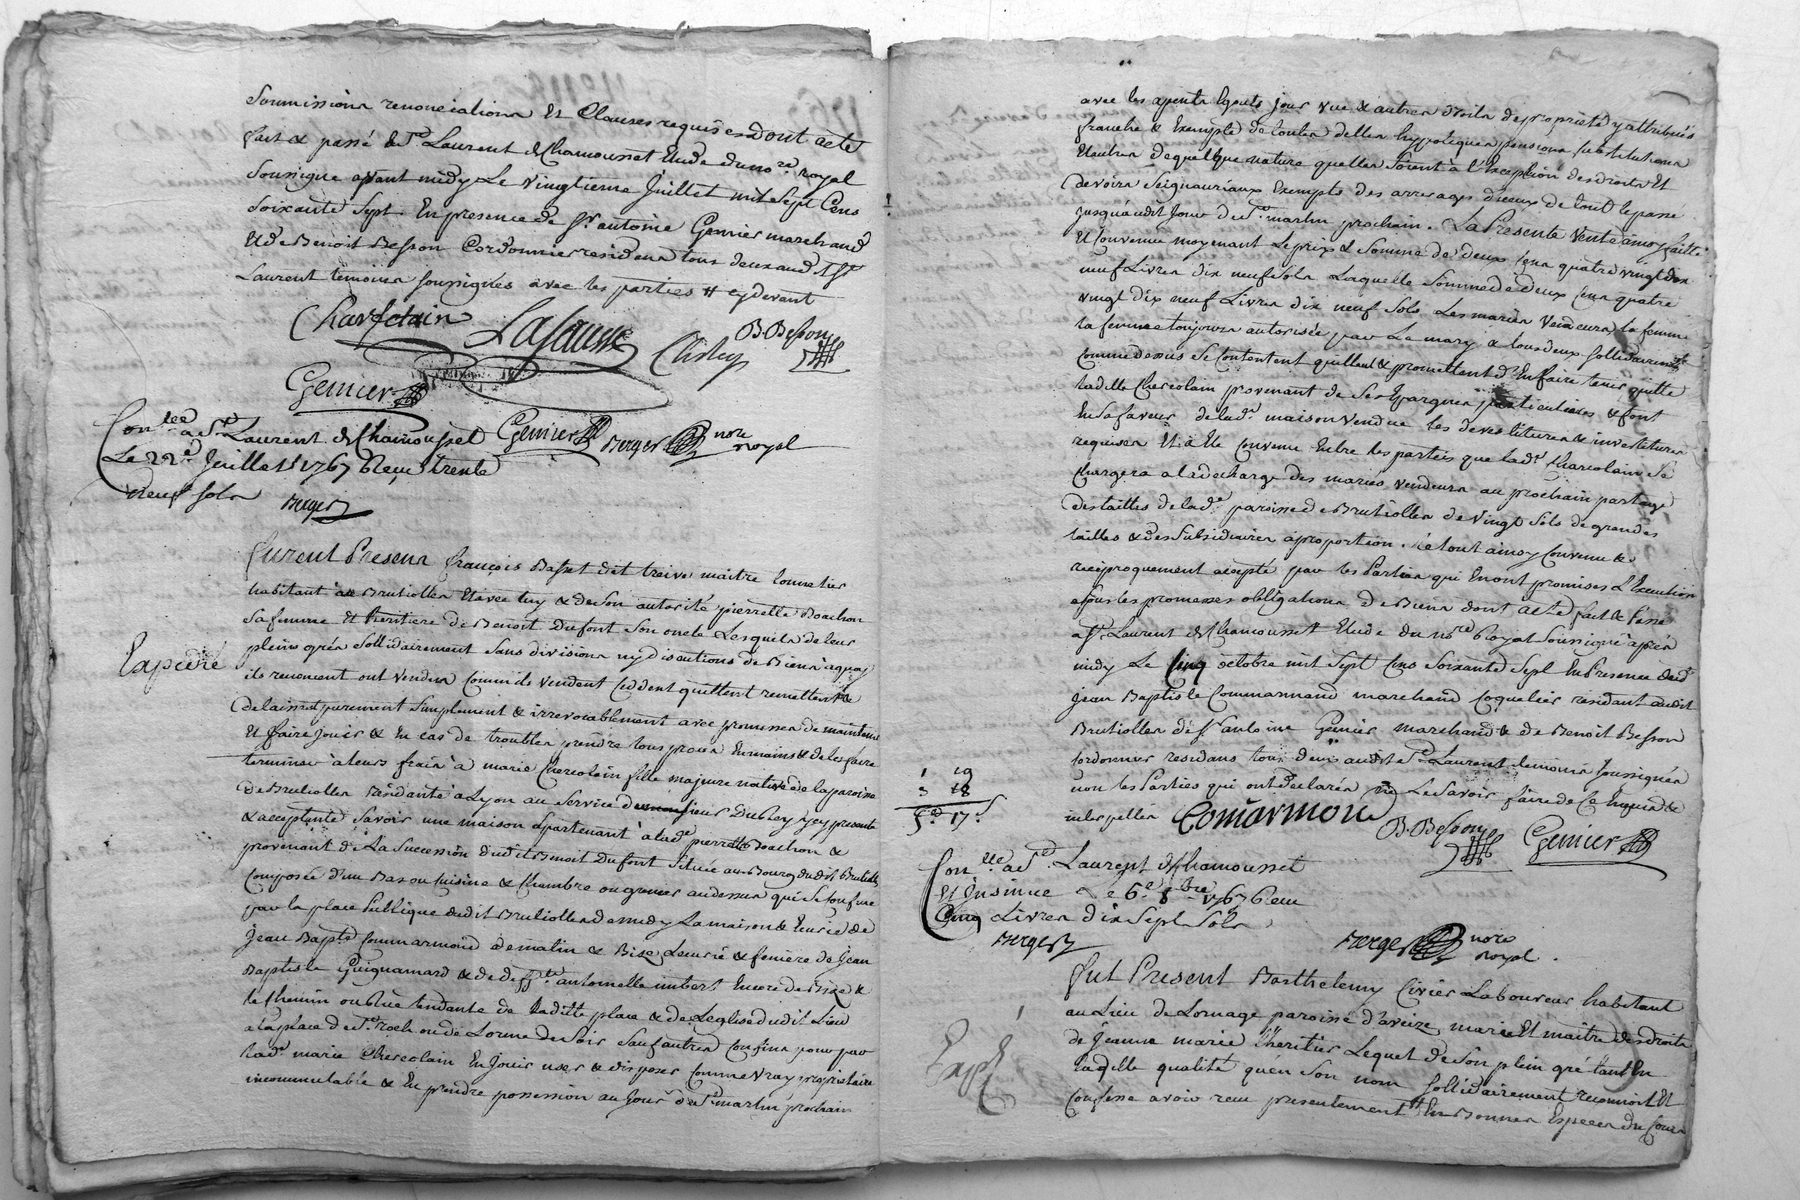 Soumissions renonciations Et Clauses requises dont acte
fait & passé à St Laurent de Chamousset Etude du nore royal
Soussigné avant midy Le vingtieme Juillet mil Sept Cens
Soixante Sept. En presence de Sr antoine Genier marchand
Et de Benoit Besson Cordonnier residens tous deux aud. St
Laurent temoins soussignés avec les parties # cy devant
LaSausse
B. Besson
Genier
Genier Berger nore royal
Conllé a St Laurent de Chamousset
Le 22e Juillet 1767 Reçu trente
neuf sols
Berger
furent Presens françois Basset dit treive maitre tonnelier
habitant à Brutiolles Et avec luy & de Son autorité pierrette Boachon
Sa femme Et heritiere de Benoit Dufont Son oncle Lesquels de leur
pleins grés Sollidairement Sans divisions ny discutions de Biens a quoy
ils renoncent ont vendu Comm'ils vendent Ceddent quittent remettent &
delaissent purement Simplement & irrevocablement avec promesses de maintenir
Et faire jouir & En cas de troubles prendre tous procès En mains & de les faire
terminer à leurs frais à marie Chercolain fille majure native de la paroisse
de Brutiolles residante à Lyon au Service du Sieur Dubley icy presente
& acceptante Savoir une maison apartenant à lade pierrette Boachon &
provenant de La Succession dudit Benoit Dufont Située au Bourg dudit Brutiolles
Composée d'un Bas ou Cuisine & Chambre ou grenier au dessus qui Se Confine
par la place Publique dudit Brutiolles de midy La maison & Ecurie de
Jean Bapte Commarmond de matin & Bize Lecurie & feniere de Jean
Baptiste Guignamard & de antoinette imbert Encore de Bize &
le Chemin ou Rüe tendante de Ladite place & de Léglise dudit Lieu
a la place de St roch ou de Lorme de Soir Sauf autres Confins pour par
lade marie Chercolain En Jouir user & disposer Comme vray propriétaire
incommutable & En prendre possession au Jour de St martin prochain
avec les apents Egouts jour vue & autres droits de proprieté y attribués
franche & Exempte de toutes dettes hypoteques pensions substitutions
Et autres de quelque nature quelles Soient à l'Exception des droits Et
devoirs Seigneuriaux Exempts des arrerages diceux de tout le passé
jusqu'audit Jour de St martin prochain. La Presente Vente ainsy faitte
Et Convenue moyenant Le prix & Somme de deux Cens quatre vingt dix
neuf Livres dix neuf Sols Laquelle Somme de deux Cens quatre
vingt dix neuf Livres dix neuf Sols Les mariés Vendeurs, la femme
la femme toujours autorisée par Le mary & tous deux Sollidairement
Comme dessus Se Contentent quittent & promettent d'En faire tenir quitte
ladite Chercolain provenant de Ses Epargnes particulieres & font
En Sa faveur de lade maison vendue les devestitures & investitures
requises Et à Eté Convenu Entre les parties que lade Chercolain Se
Chargera à la decharge des mariés vendeurs au prochain partage
des tailles de lade paroisse de Brutiolles de vingt Sols de grandes
tailles & des Subsidiaires à proportion. Le tout ainsy Convenu &
reciproquement accepté par les Parties qui En ont promises L'Execution
a Sous les promesses obligations de Biens dont acte fait & Passé
a St Laurent de Chamousset Etude du nore Royal Soussigné après
midy Le Cinq octobre mil Sept Cens Soixante Sept En Presence de Sr
Jean Baptiste Commarmond marchand Coquetier residant audit
Brutiolles de Sr antoine Genier marchand & de Benoit Besson
Cordonnier residans tous deux audit St Laurent temoins soussignés
non les Parties qui ont declarés ne Le Savoir faire de Ce Enquis &
interpellés Comarmond
B. Besson Genier
1 19
3 18
5# 17s
Conllé a St Laurent de Chamousset
Et Insinué Le 6e 8bre 1767 Reçu
Cinq Livres dix Sept Sols
Berger
Berger nore royal.
fut Present Barthelemy Civier Laboureur habitant
au Lieu de Lornage paroisse d'aveize mari Et maitre des droits
de Jeanne marie Lheritier Lequel de Son plein gré tant En
ladite qualité qu'en Son nom Sollidairement reconnoit Et
Confesse avoir reçu presentement En Bonnes Especes du Cours